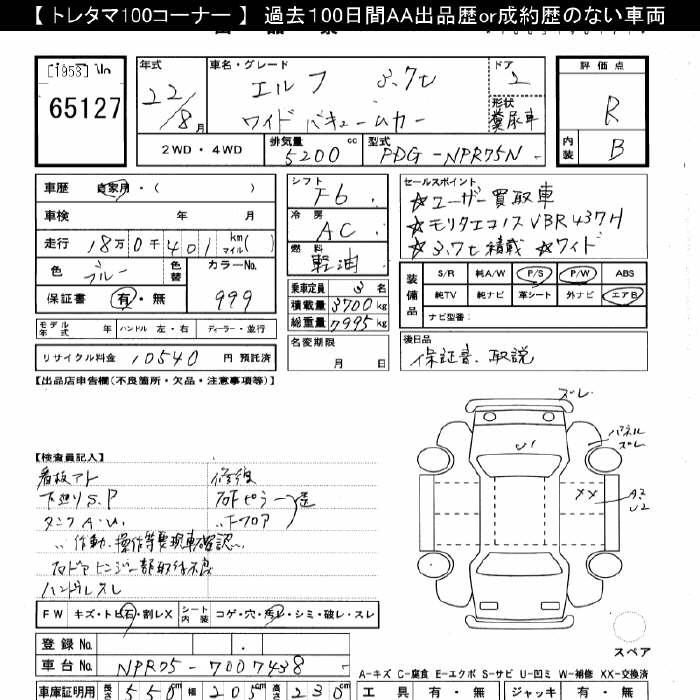 【トレタマ100コーナー】 過去100日間AA出品歴or成約歴のない車両
65127
年式
22/8月
車名・グレード
エルフ 3.7t
ワイド バキュームカー
ドア
2
形状
糞尿車
評価点
R
内装
B
2WD・4WD
排気量
5200 cc
型式
PDG-NPR75N
車歴 自家用・( )
車検 年 月
走行 18万0千401 km マイル( )
色 ブルー 色替
カラーNo.
999
保証書 有・無
モデル年式 年 ハンドル 左・右 ディーラー・並行
リサイクル料金 10540 円 預託済
シフト
F6
冷房
AC
燃料
軽油
乗車定員 3 名
積載量 3700 kg
総重量 7995 kg
名変期限
月 日
セールスポイント
☆ユーザー買取車
☆モリタエコノス VBR437H
☆3.7t積載 ☆ワイド
装備品
S/R 純A/W P/S P/W ABS
純TV 純ナビ 革シート 外ナビ エアB
ナビ型番:
後日品
保証書、取説
【出品店申告欄(不良箇所・欠品・注意事項等)】
【検査員記入】
看板アト
下廻りS.P
タンクA.U.
〃 作動、操作等要現車確認
右ドアヒンジ部取付不良
ハンドルスレ
修復
右ピラー
〃フロア
ズレ
パネルズレ
U1
XX
A2
U2
スペア
FW キズ・トビ石・割レX シート内装 コゲ・穴・汚レ・シミ・破レ・スレ
登録No.
車台No. NPR75-7007438
A-キズ C-腐食 E-エクボ S-サビ U-凹ミ W-補修 XX-交換済
車庫証明用 長さ 550cm 幅 205cm 高さ 230cm
工具 有・無 ジャッキ 有・無